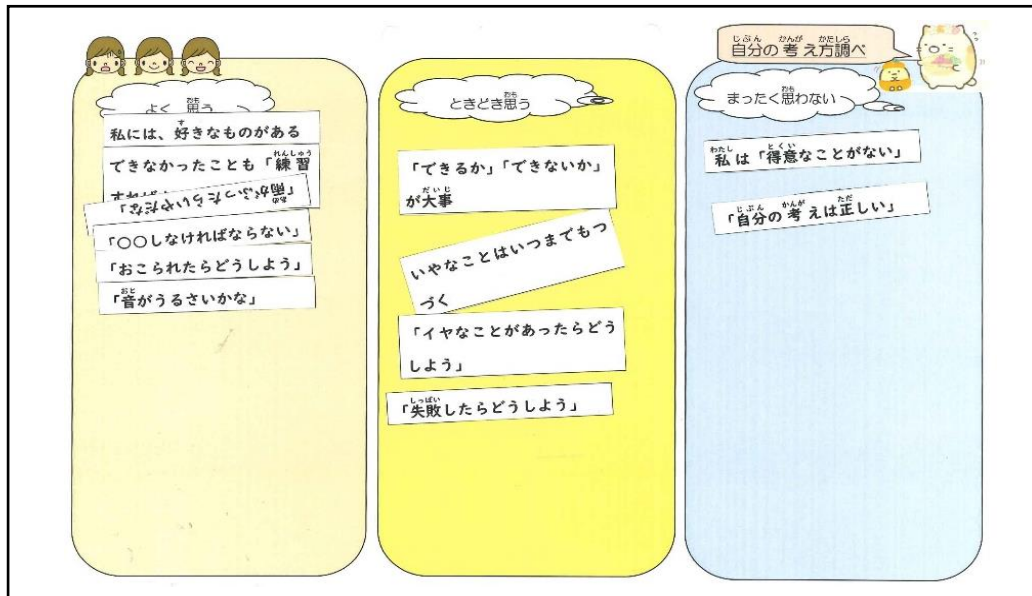 自分の考え方調べ
よく思う
私には、好きなものがある
できなかったことも「練習
「雨がふったらいやだな」
「〇〇しなければならない」
「おこられたらどうしよう」
「音がうるさいかな」
ときどき思う
「できるか」「できないか」
が大事
いやなことはいつまでもつ
づく
「イヤなことがあったらどう
しよう」
「失敗したらどうしよう」
まったく思わない
私は「得意なことがない」
「自分の考えは正しい」